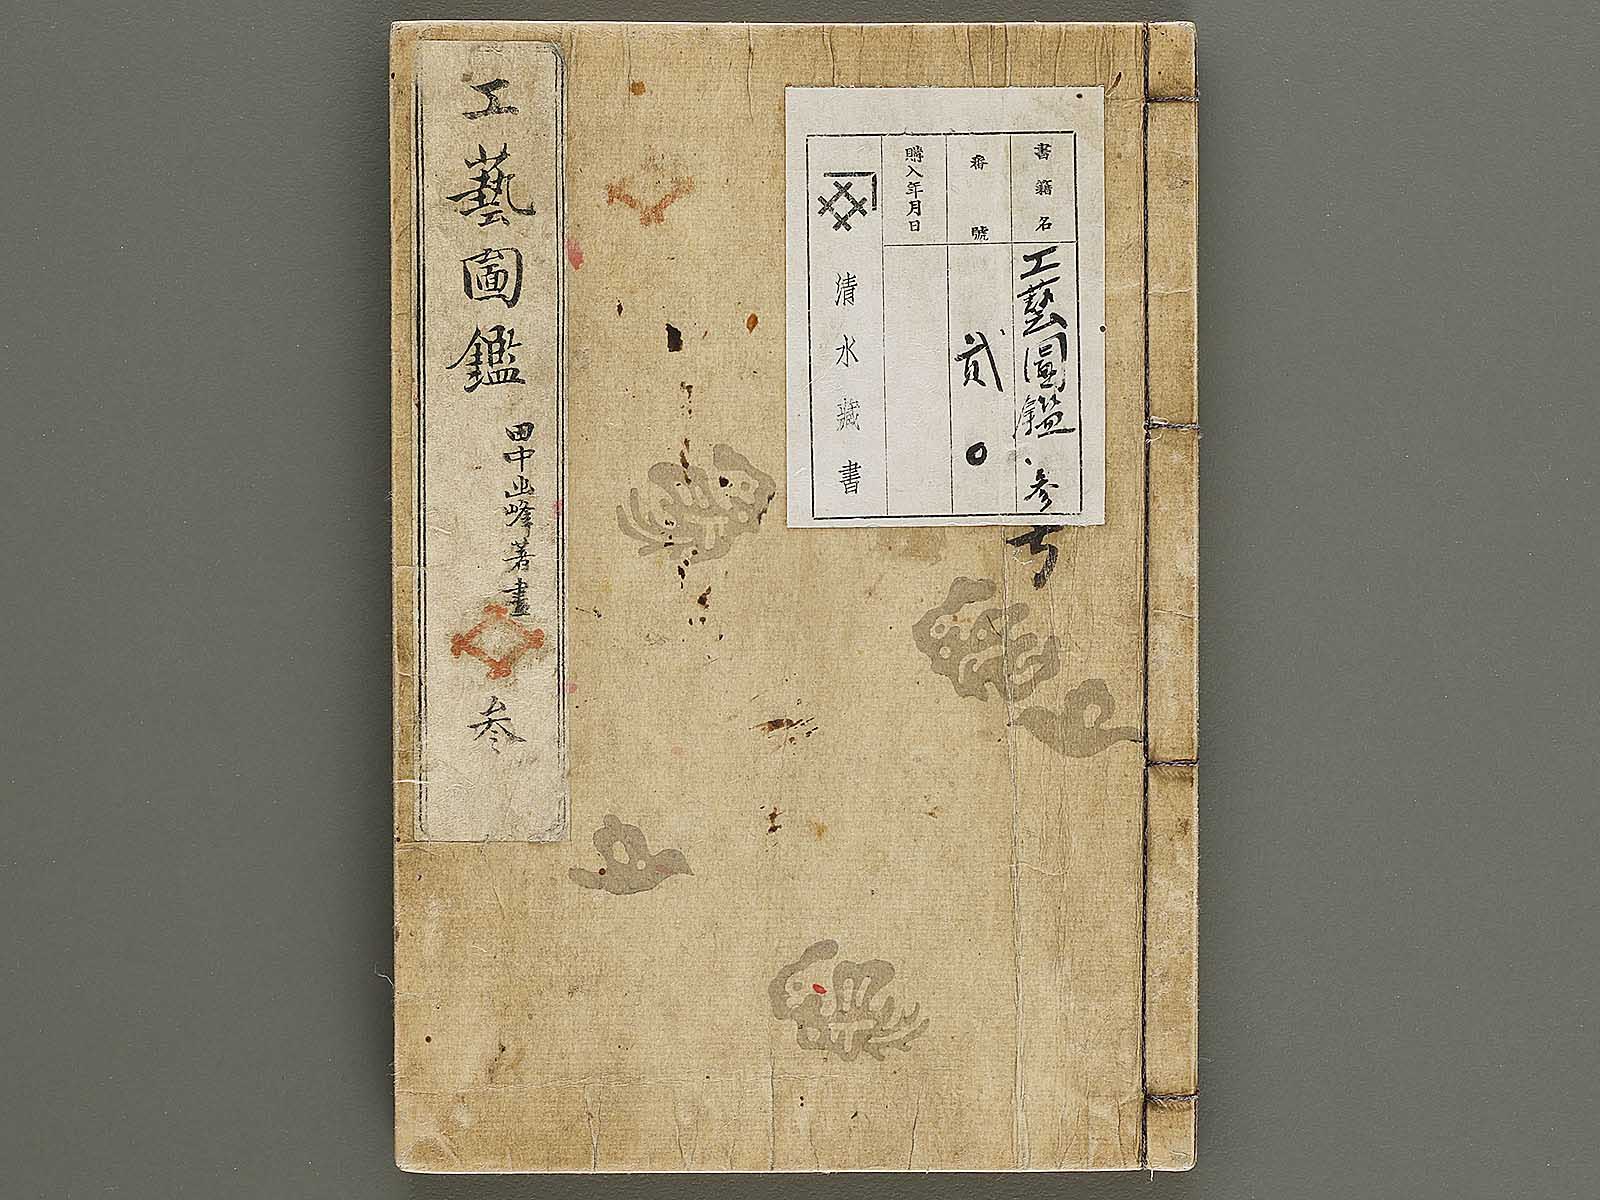 書籍名 工藝圖鑑 参
番號 貳〇
購入年月日
清水藏書
工藝圖鑑
田中幽峰著畫
参